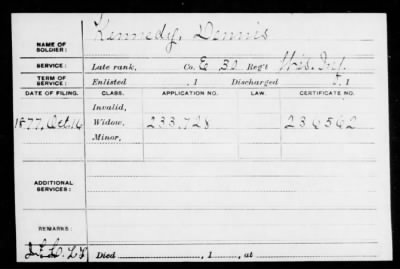 Kennedy, Dennis
NAME OF SOLDIER:
SERVICE: Late rank, Co. E 30 Reg't Wis. Inf.
TERM OF SERVICE: Enlisted , 1 Discharged , 1
DATE OF FILING. CLASS. APPLICATION NO. LAW. CERTIFICATE NO.
Invalid,
1877, Oct. 16 Widow, 233,728 236562
Minor,
ADDITIONAL SERVICES:
REMARKS:
Died , 1 , at